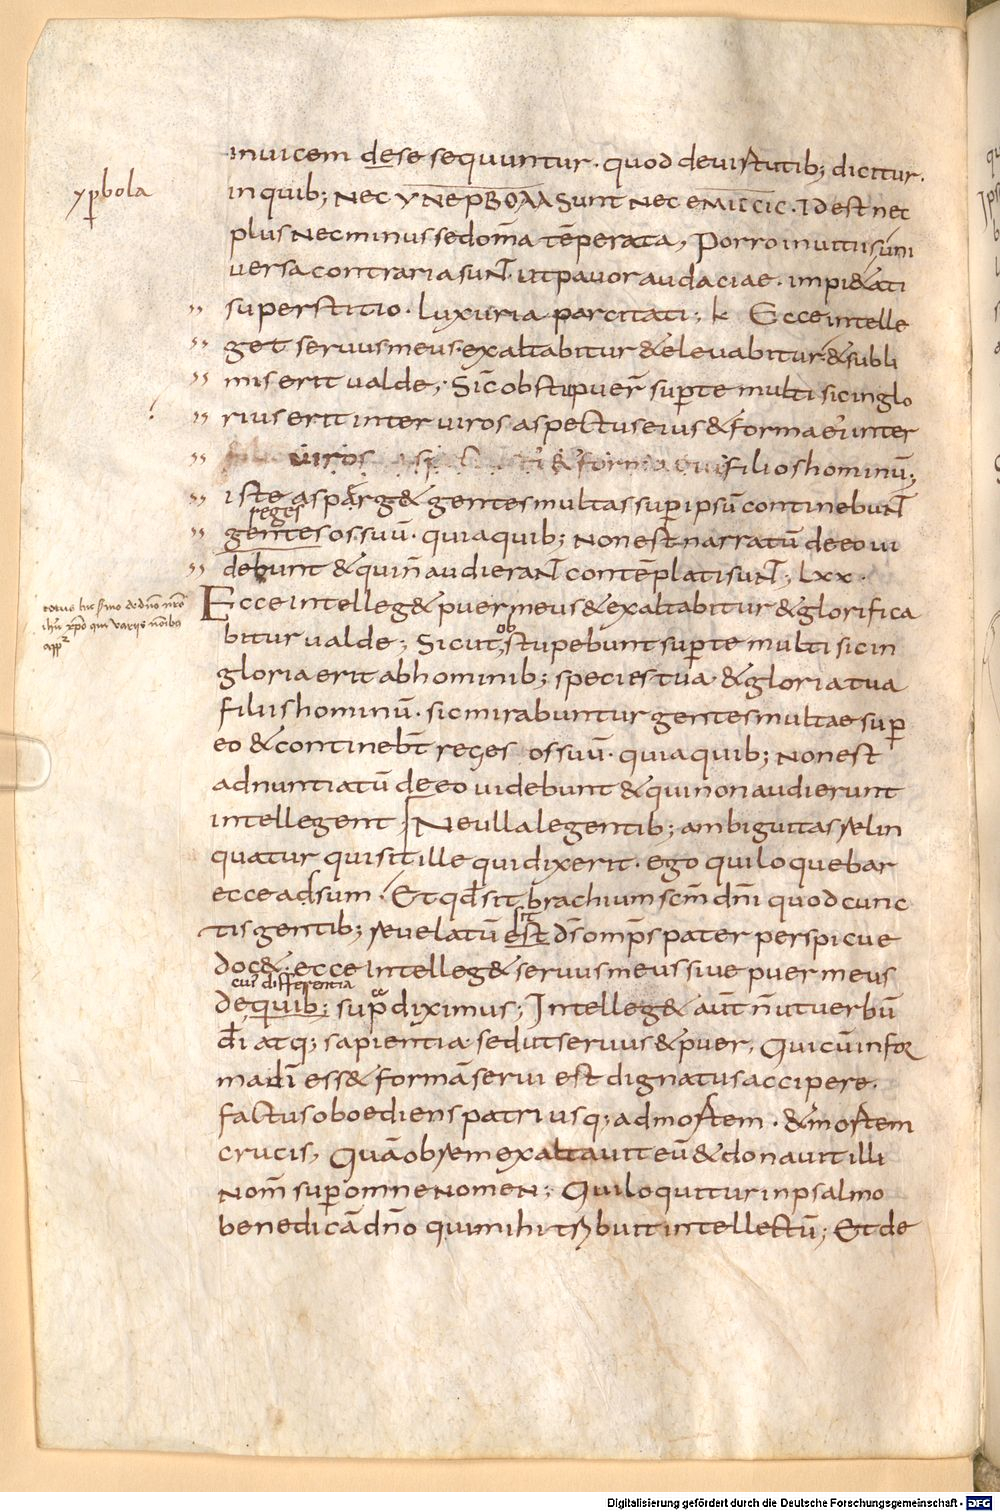 yꝑbola
inuicem de se sequuntur · quod deuirtutib; dicitur ·
in quib; nec ΥΠЄΡΒΟΛΛ sunt nec
plus nec minus sed om̄a tēperata, Porro inuitiis uni
uersa contraria suNT · ut pauor audaciae · impi&ati
superstitio · luxuria parcitati; k Ecce intelle
get seruus meus · exaltabitur & eleuabitur & subli
mis erit ualde; Sic̄ obstipuer̄ suꝑ te multi sic inglo
rius erit inter uiros aspectus eius & forma ei' inter
uiros filios hominū;
iste asparg& gentes multas suꝑ ipsū continebuNT
reges
gentes os suū · quia quib; non est narratū de eo ui
debunt & qui n̄ audieraNT contēplati suNT; Lxx ·
Ecce intelleg& puer meus & exaltabitur & glorifica
bitur ualde; Sicut ob stupebunt suꝑ te multi sic in
gloria erit ab hominib; species tua · & gloria tua
filiis hominū · sic mirabuntur gentes multae suꝑ
eo & continebt̄ reges os suū · quia quib; non est
adnuntiatū de eo uidebunt & qui non audierunt
intellegent; Ne ulla legentib; ambiguitas relin
quatur quis sit ille qui dixerit · ego qui loquebar
ecce adsum · Et qđ sit brachium scm̄ dn̄i quod cunc
tis gentib; reuelatū est sit ds̄ omp̄s pater perspicue
doc& · ecce intelleg& seruus meus siue puer meus
cuī differentia
De quib; supͣ diximus; Intelleg& aūt n̄ ut uerbū
dī atq; sapientia sed ut seruus & puer, Qui cū in for
ma dī ess& formā serui est dignatus accipere ·
factus oboediens patri usq; ad mortem · & mortem
crucis, Quā ob rem exaltauit eū & donauit illi
nom̄ suꝑ omne nomen; Qui loquitur in psalmo
benedicā dn̄o qui mihi tribuit intellectū; Et de
Digitalisierung gefördert durch die Deutsche Forschungsgemeinschaft - DFG